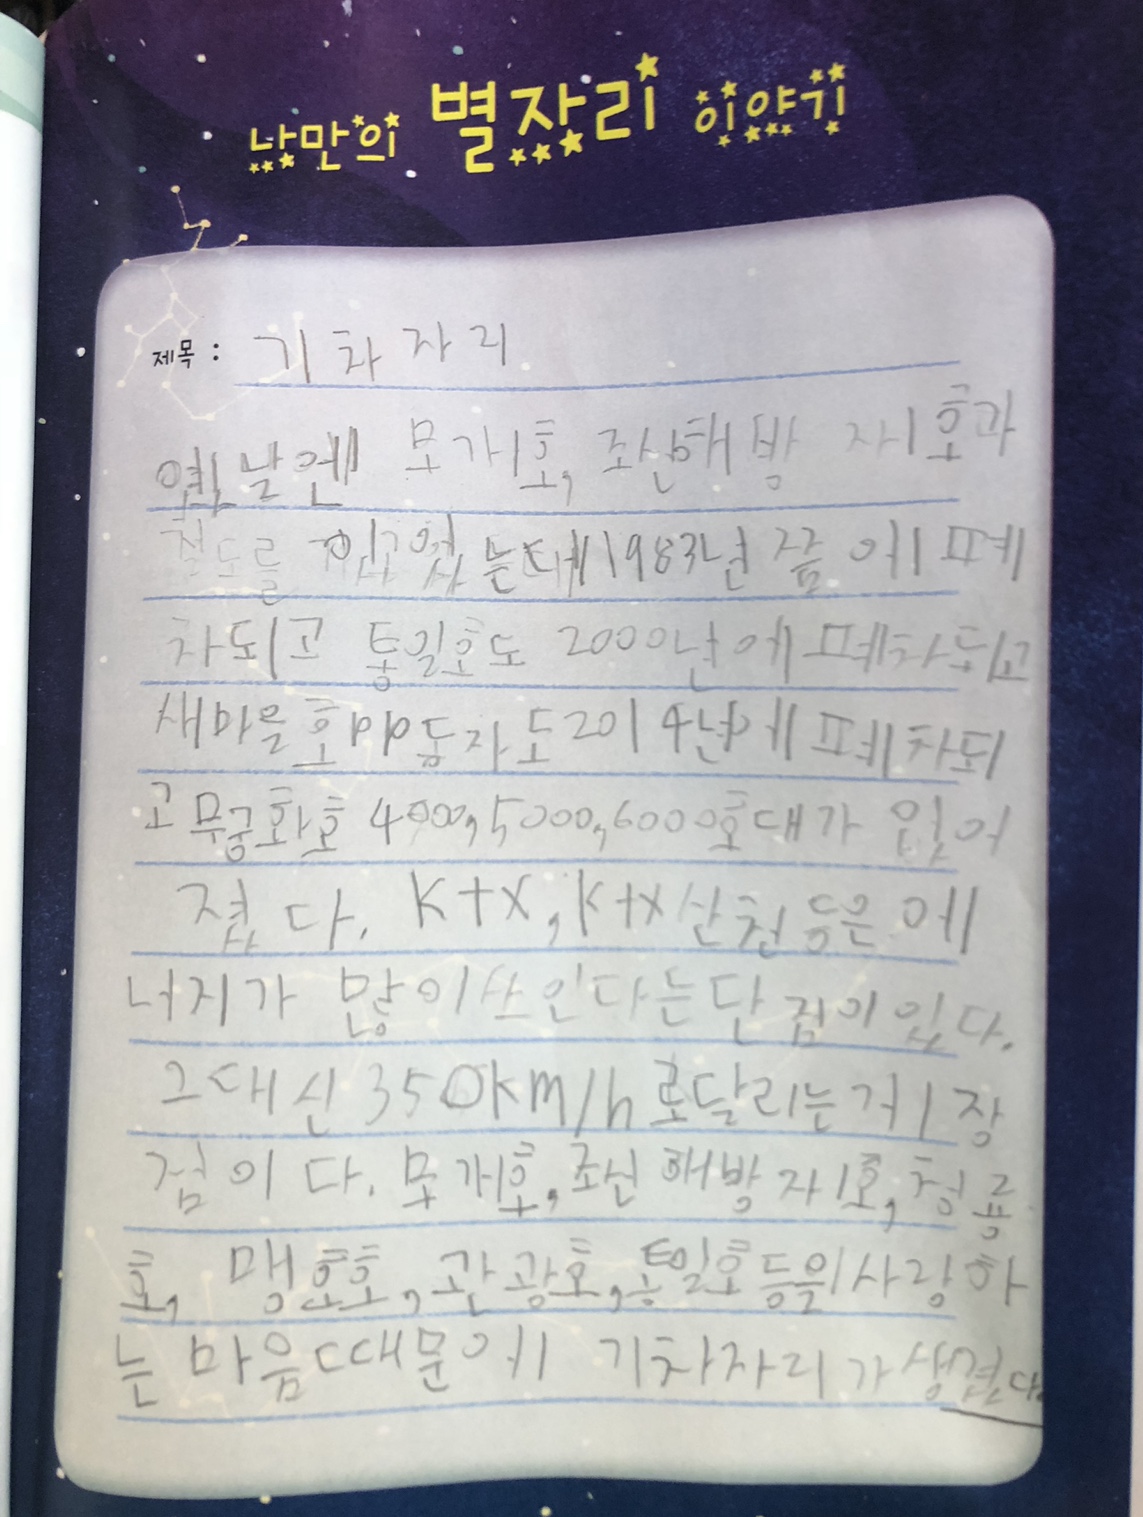 나만의 별자리 이야기
제목 : 기차자리
옛날엔 모가호, 조선해방 자1호과
철도를 있었는데 1983년 쯤 에 폐
차되고 통일호도 2000년에 폐차되고
새마을호 pp동차도 2014년에 폐차되
고 무궁화호 4000,5000,6000호대가 없어
졌다. K+X, K+X산천등은 에
너지가 많이쓰인다는단점이있다.
그대신 350KM/h로달리는거 장
점이다. 모개호, 조선해방자1호, 청룡
호, 맹호호, 관광호, 통일호등을사랑하
는 마음때문에 기차자리가생겼다.